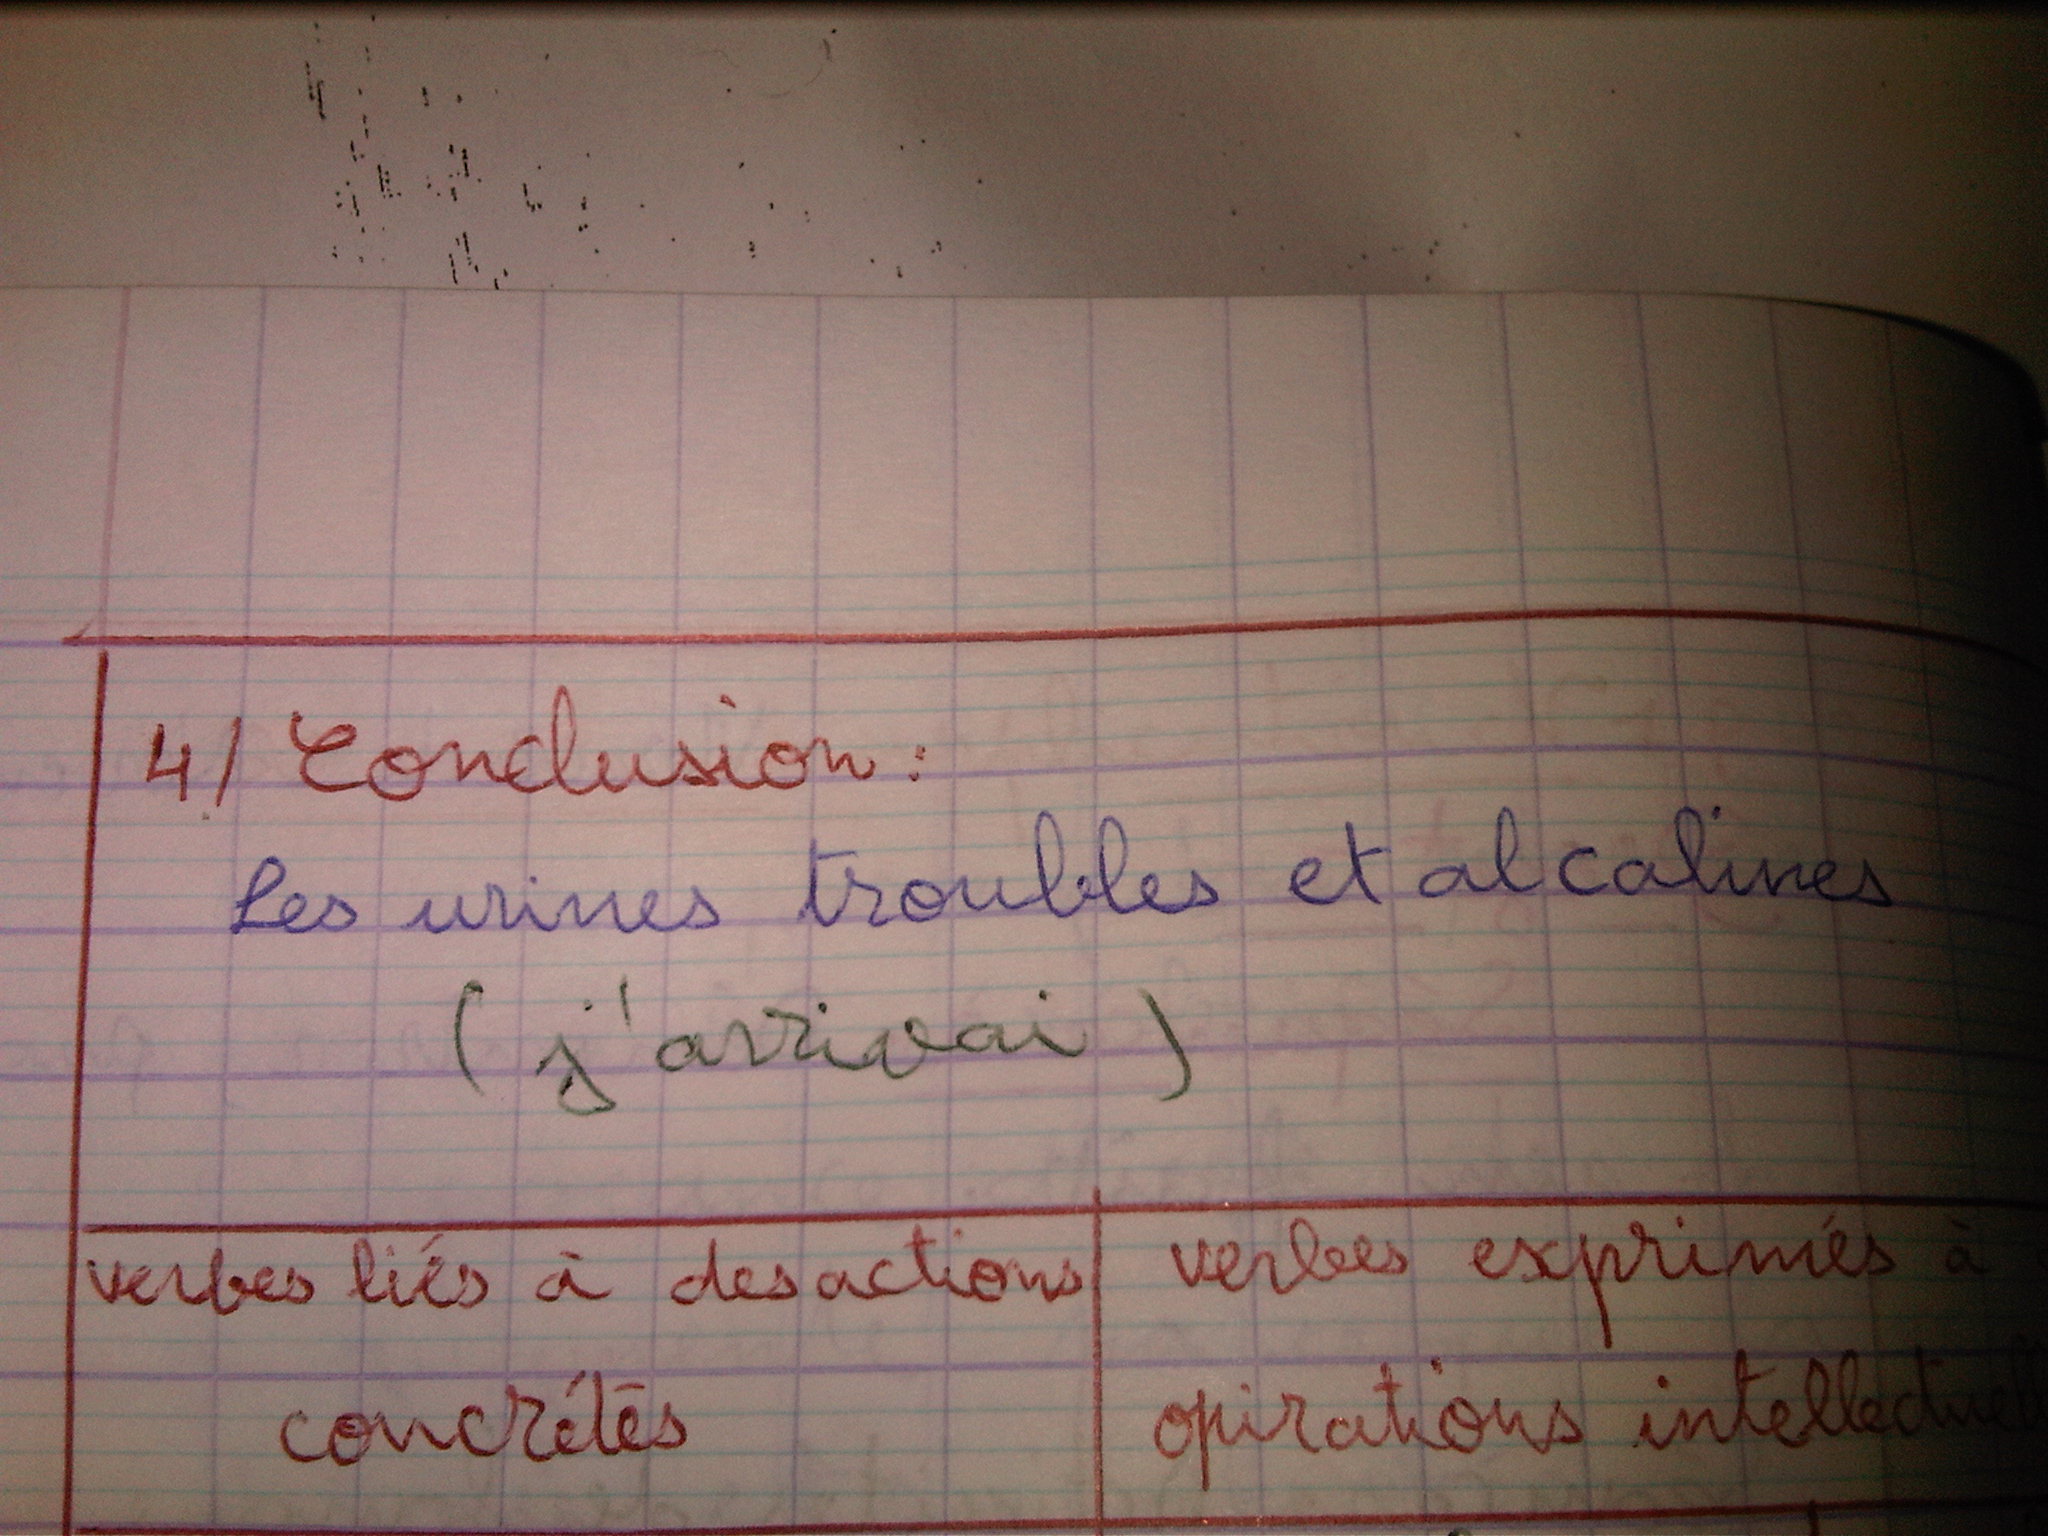 4/ Conclusion:
Les urines troubles et alcalines
(j'arrivai)
verbes liés à des actions
concrétés
verbes exprimés à
opirations intellectuell